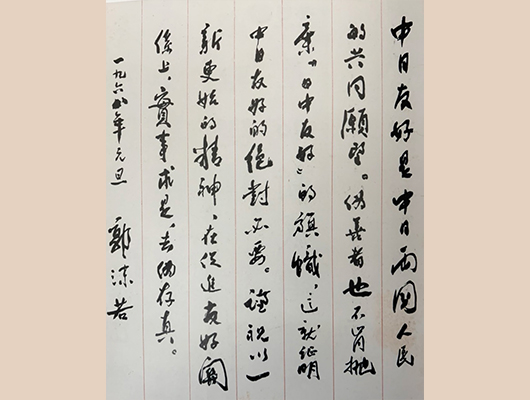 中日友好是中日兩國人民
的共同願望。偽善者也不肯拋
棄“日中友好”的旗幟，這就証明
中日友好的絕對必要。謹祝以一
新更始的精神，在促進友好關
係上，實事求是，去偽存真。
一九六五年元旦 郭沫若